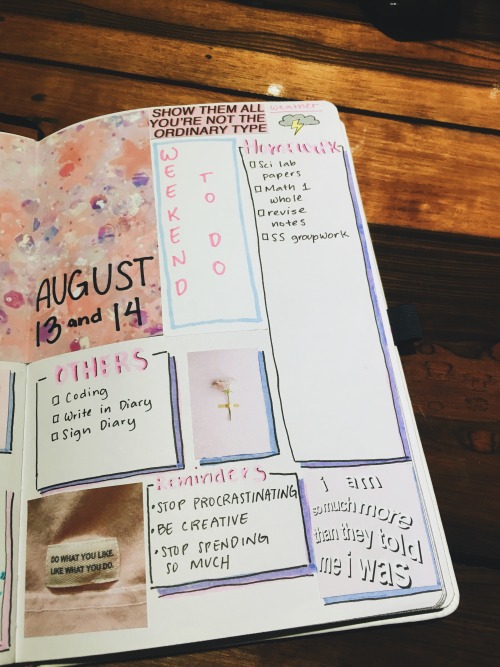 SHOW THEM ALL
YOU'RE NOT THE
ORDINARY TYPE
weather
WEEKEND
TO DO
AUGUST
13 and 14
Homework
Sci lab
papers
Math 1
whole
revise
notes
SS groupwork
OTHERS
Coding
Write in Diary
Sign Diary
Reminders
• STOP PROCRASTINATING
• BE CREATIVE
• STOP SPENDING
SO MUCH
DO WHAT YOU LIKE.
LIKE WHAT YOU DO.
i am
so much more
than they told
me i was